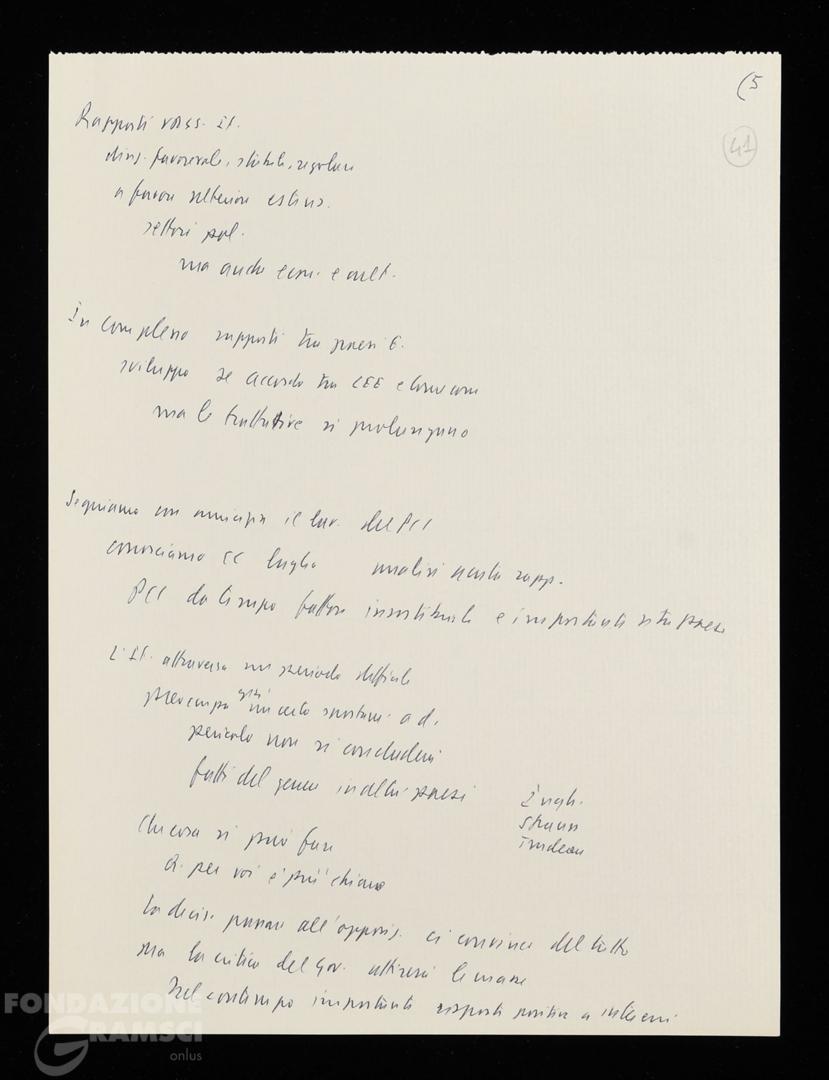 (5
41
Rapporti ross. it.
dim. favorevole, stabile, regolare
a favore ulteriore estens.
settori pol.
ma anche econ. e cult.
In complesso rapporti tra paesi E.
sviluppo se accordo tra CEE e Comecon
ma le trattative si prolungano
Seguiamo con amicizia il lav. del PCI
conosciamo CC luglio analisi vostro rapp.
PCI da tempo fattore insostituibile e importante vita paese
L'It. attraversa un periodo difficile
preoccupa un certo spostam. a d.
pericolo non si concluderà
fatti del genere in altri paesi
Ingh.
Strauss
Trudeau
Che cosa si può fare
a. per voi è più chiaro
La decis. passare all'oppos. ci convince del tutto
ma la critica del Gov. attirerà le masse
Nel contempo importante risposta positiva a interessi
FONDAZIONE
GRAMSCI
onlus